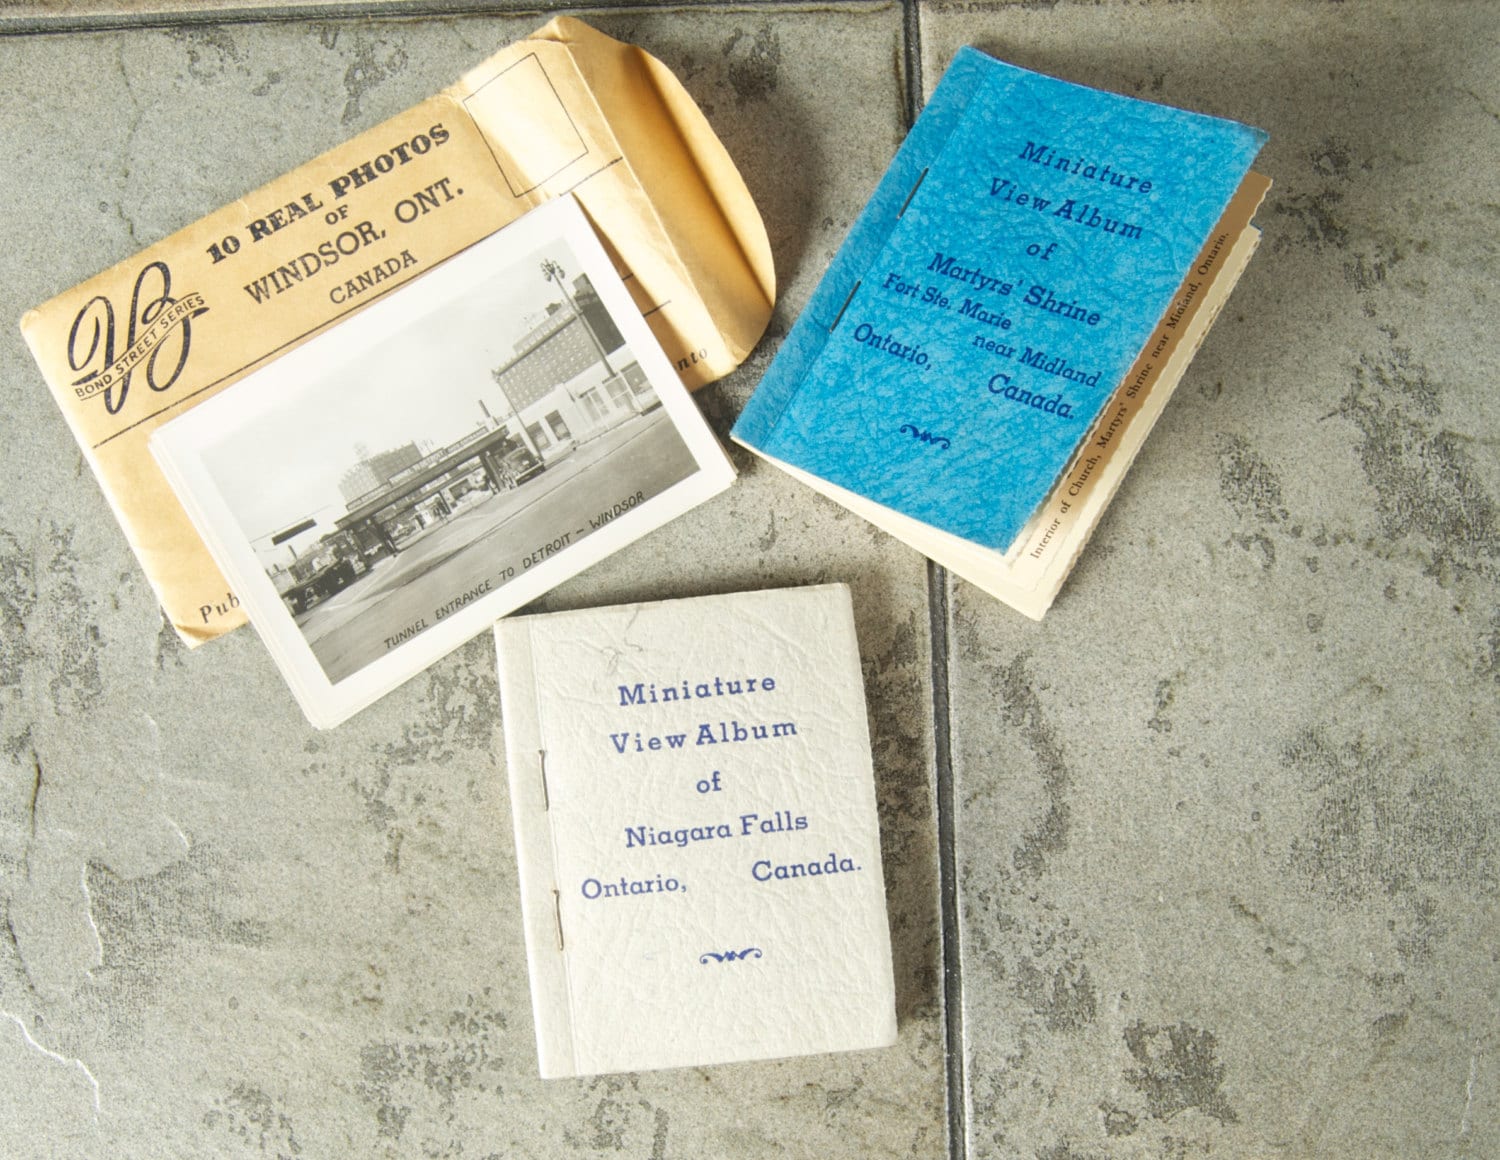 10 REAL PHOTOS
OF
WINDSOR, ONT.
CANADA
BOND STREET SERIES
Pub
nto
TUNNEL ENTRANCE TO DETROIT - WINDSOR
Miniature
View Album
of
Martyrs' Shrine
Fort Ste. Marie
near Midland
Ontario,
Canada.
Interior of Church, Martyrs' Shrine near Midland, Ontario.
Miniature
View Album
of
Niagara Falls
Ontario, Canada.